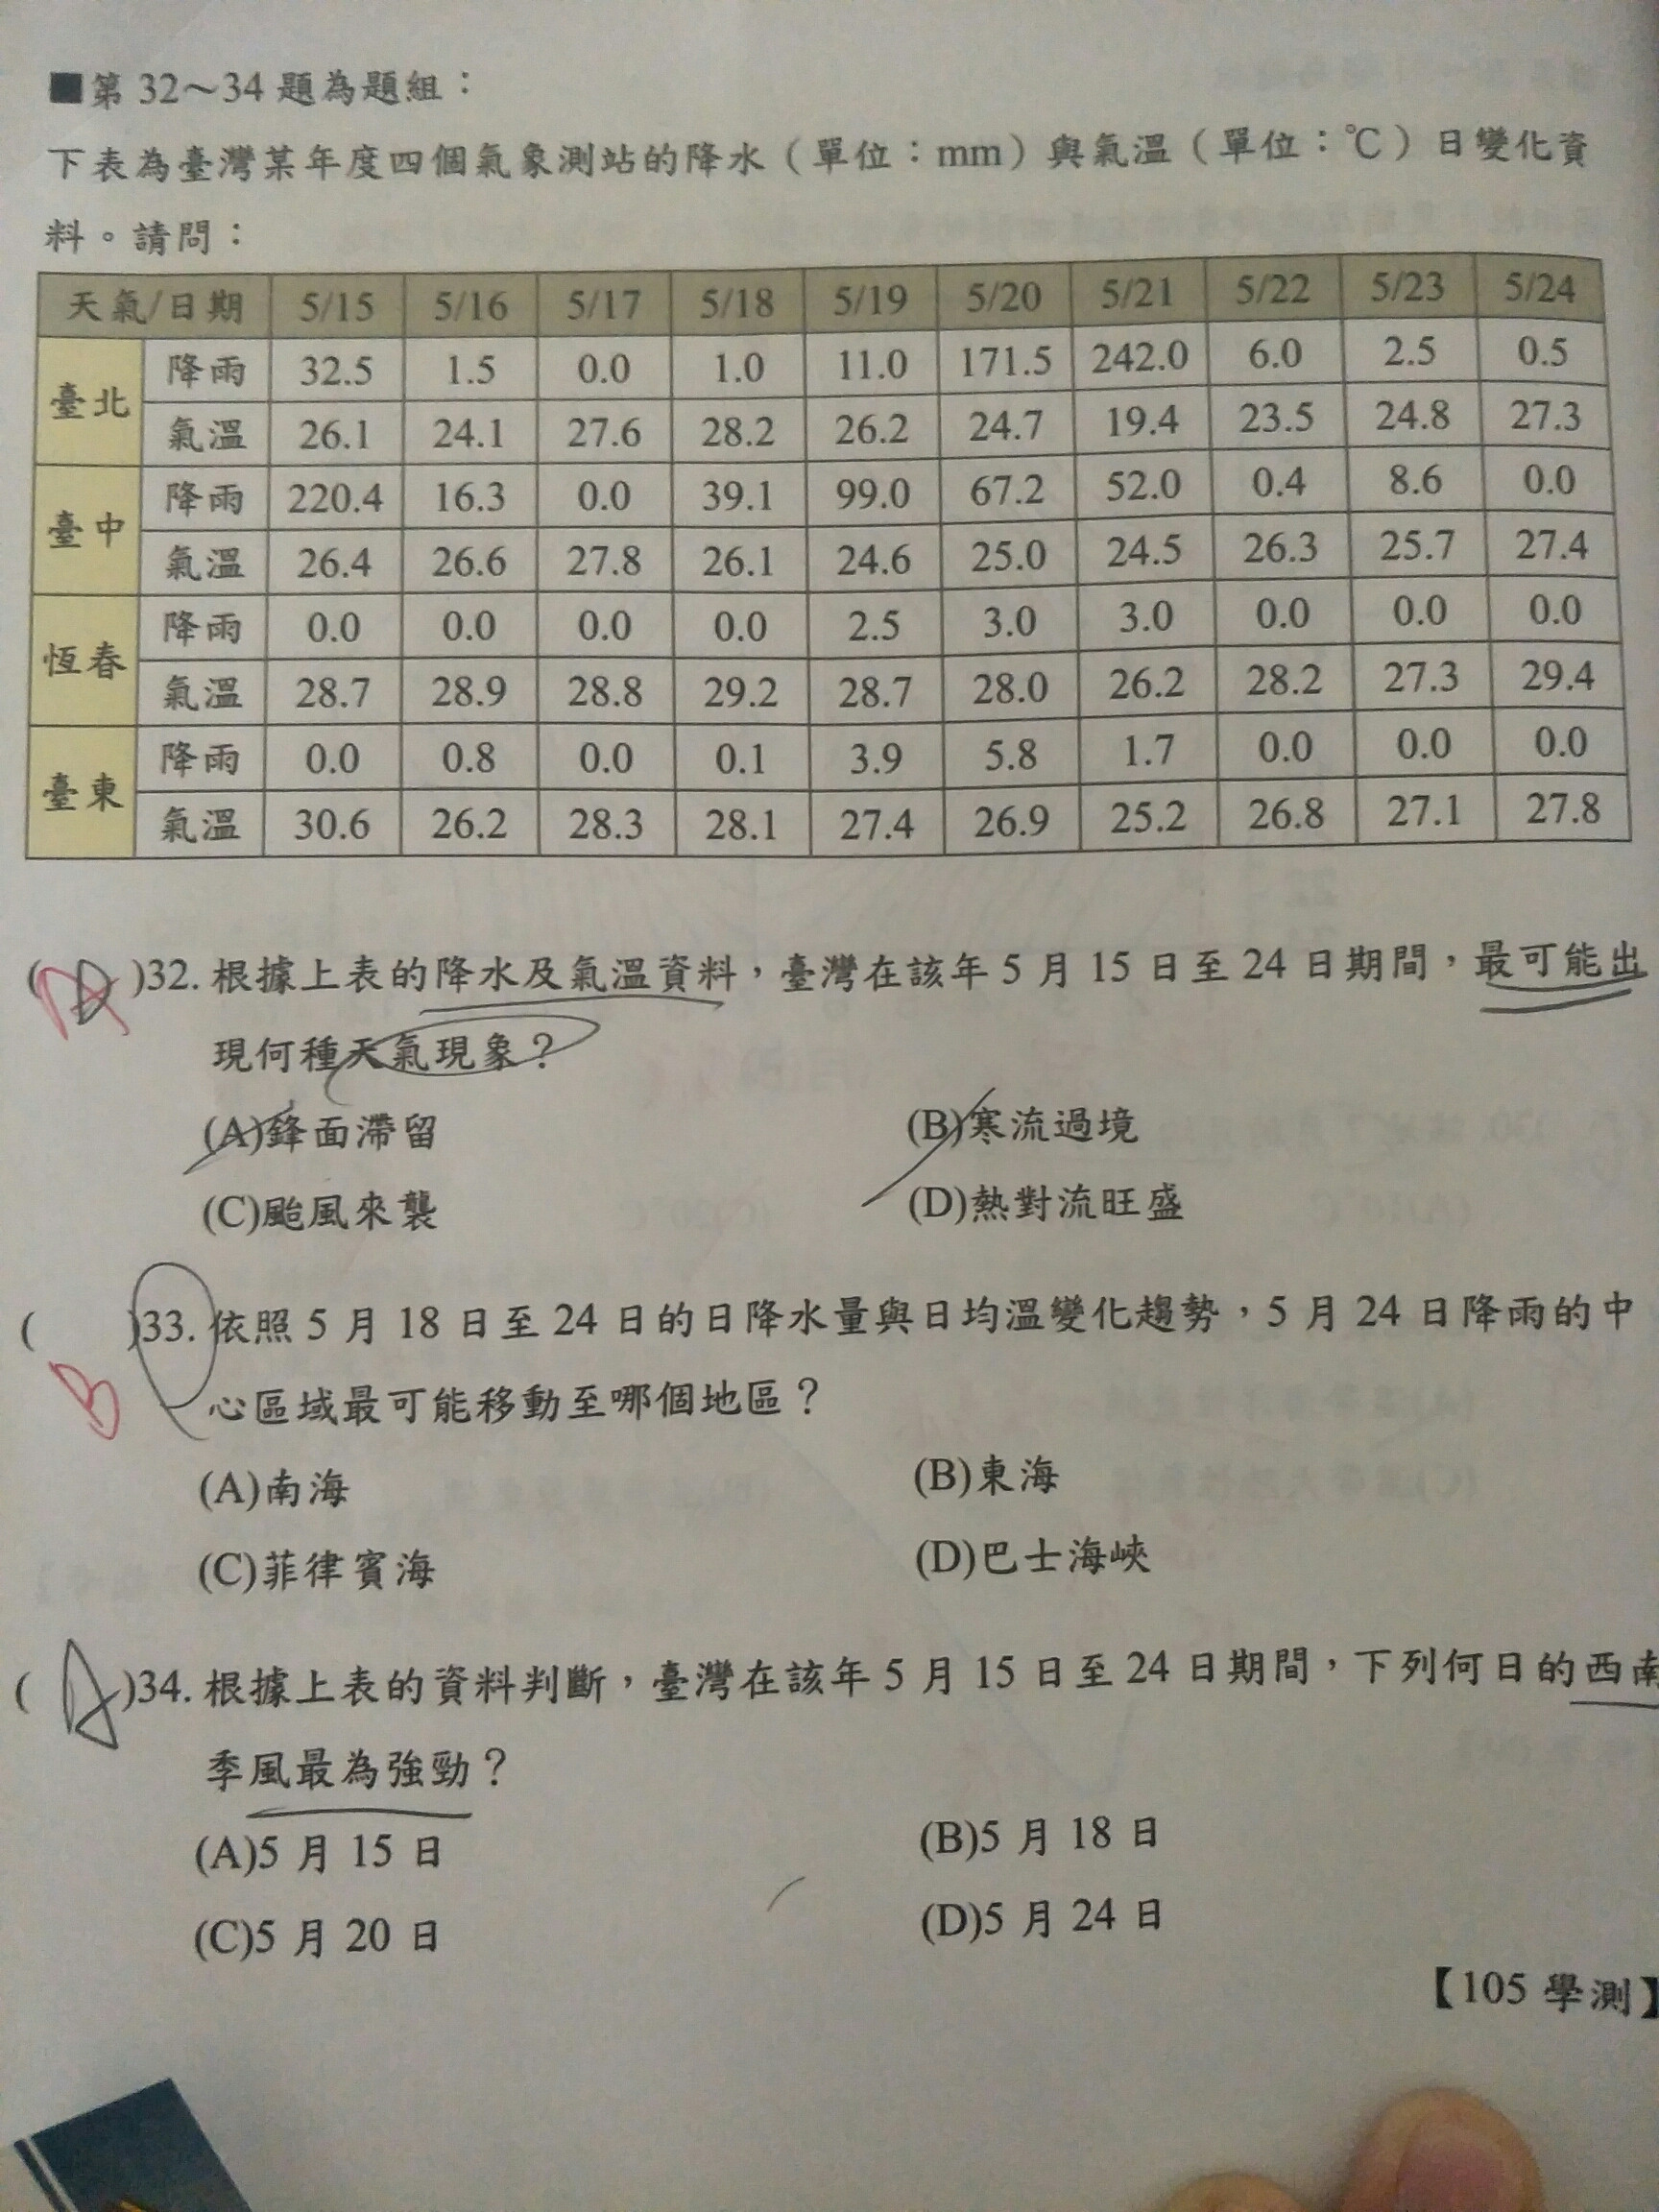 ■第 32～34 題為題組：
下表為臺灣某年度四個氣象測站的降水（單位：mm）與氣溫（單位：℃）日變化資
料。請問：
天氣/日期 5/15 5/16 5/17 5/18 5/19 5/20 5/21 5/22 5/23 5/24
臺北 降雨 32.5 1.5 0.0 1.0 11.0 171.5 242.0 6.0 2.5 0.5
氣溫 26.1 24.1 27.6 28.2 26.2 24.7 19.4 23.5 24.8 27.3
臺中 降雨 220.4 16.3 0.0 39.1 99.0 67.2 52.0 0.4 8.6 0.0
氣溫 26.4 26.6 27.8 26.1 24.6 25.0 24.5 26.3 25.7 27.4
恆春 降雨 0.0 0.0 0.0 0.0 2.5 3.0 3.0 0.0 0.0 0.0
氣溫 28.7 28.9 28.8 29.2 28.7 28.0 26.2 28.2 27.3 29.4
臺東 降雨 0.0 0.8 0.0 0.1 3.9 5.8 1.7 0.0 0.0 0.0
氣溫 30.6 26.2 28.3 28.1 27.4 26.9 25.2 26.8 27.1 27.8
( )32. 根據上表的降水及氣溫資料，臺灣在該年 5 月 15 日至 24 日期間，最可能出
現何種天氣現象？
(A)鋒面滯留 (B)寒流過境
(C)颱風來襲 (D)熱對流旺盛
( )33. 依照 5 月 18 日至 24 日的日降水量與日均溫變化趨勢，5 月 24 日降雨的中
B 心區域最可能移動至哪個地區？
(A)南海 (B)東海
(C)菲律賓海 (D)巴士海峽
( A )34. 根據上表的資料判斷，臺灣在該年 5 月 15 日至 24 日期間，下列何日的西南
季風最為強勁？
(A)5 月 15 日 (B)5 月 18 日
(C)5 月 20 日 (D)5 月 24 日
【105 學測】